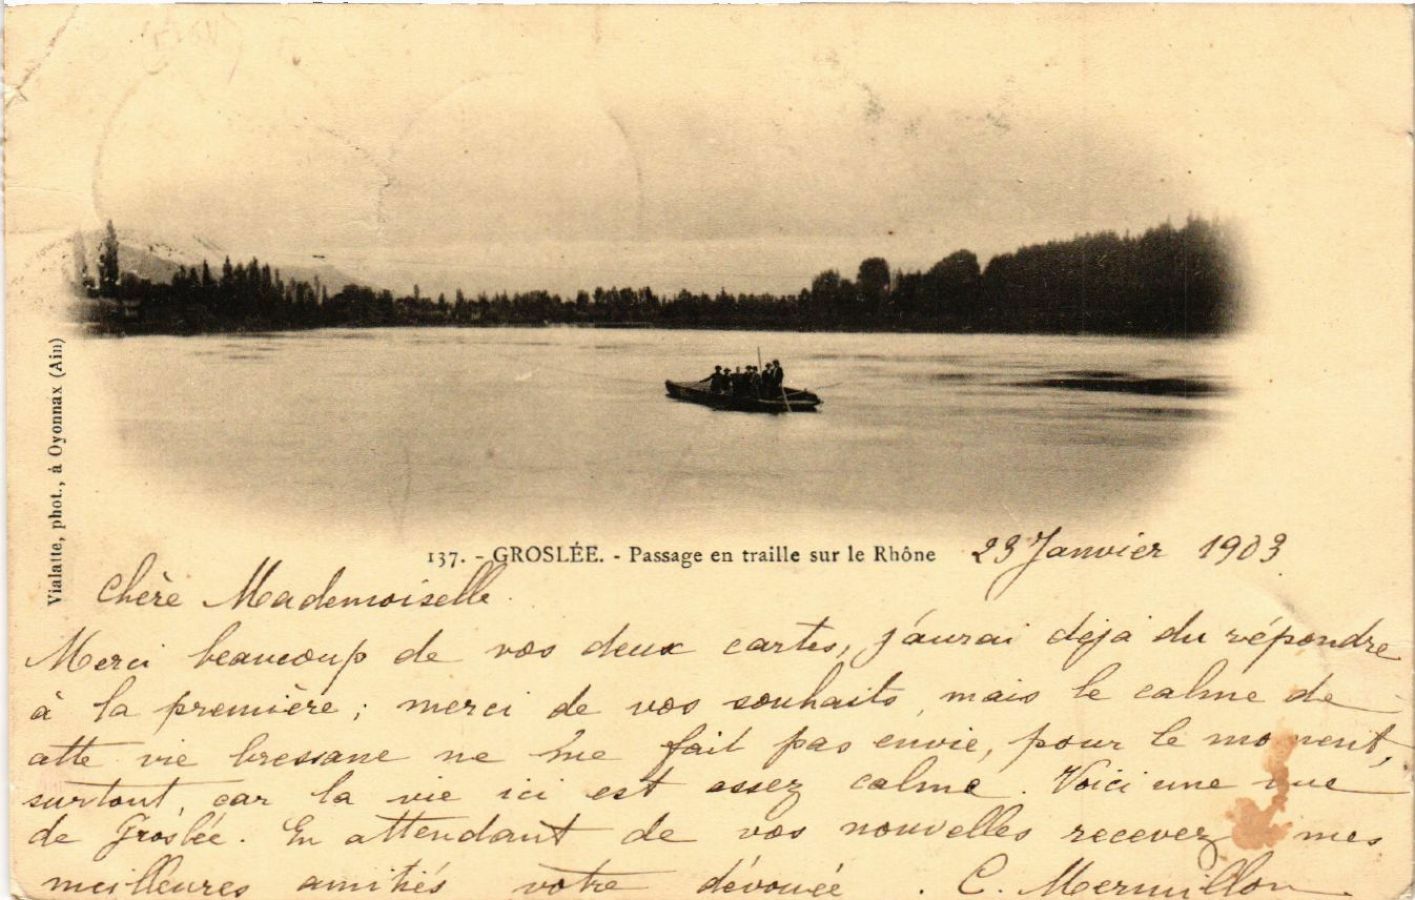 Vialatte, phot., à Oyonnax (Ain)
137. - GROSLÉE. - Passage en traille sur le Rhône
23 Janvier 1903
Chère Mademoiselle.
Merci beaucoup de vos deux cartes, j'aurai déjà du répondre
à la première ; merci de vos souhaits, mais le calme de
cette vie bressane ne me fait pas envie, pour le moment,
surtout, car la vie ici est assez calme. Voici une vue
de Groslée. En attendant de vos nouvelles recevez mes
meilleures amitiés votre dévouée. C. Mermillon.